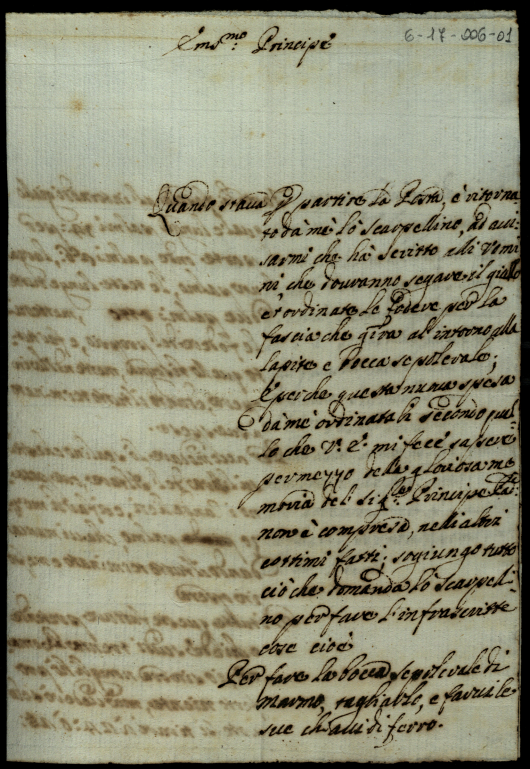 6-17-006-01
Em.mo Principe
Quando stava p partire la Posta, è ritorna
to dà mè lo scarpellino, ad avi
sarmi che hà scritto alli Uomi
ni che douranno segare il giallo
et ordinate le per la
fascia che gira al intorno alla
lapite e bocca sepolcrale;
e perche questa nuoua spesa
dà mè ordinatali secondo quel
lo che V. E. mi fece sapere
per mezzo della gloriosa me
moria del Sig.re Principe
non è compresa, nelli altri
cottimi fatti; sogiungo tutto
ciò che domanda lo scarpelli
no per fare l'infrascritte
cose cioè
Per fare la bocca sepolcrale di
marmo, tagliarlo, e farui le
sue chiaui di ferro.